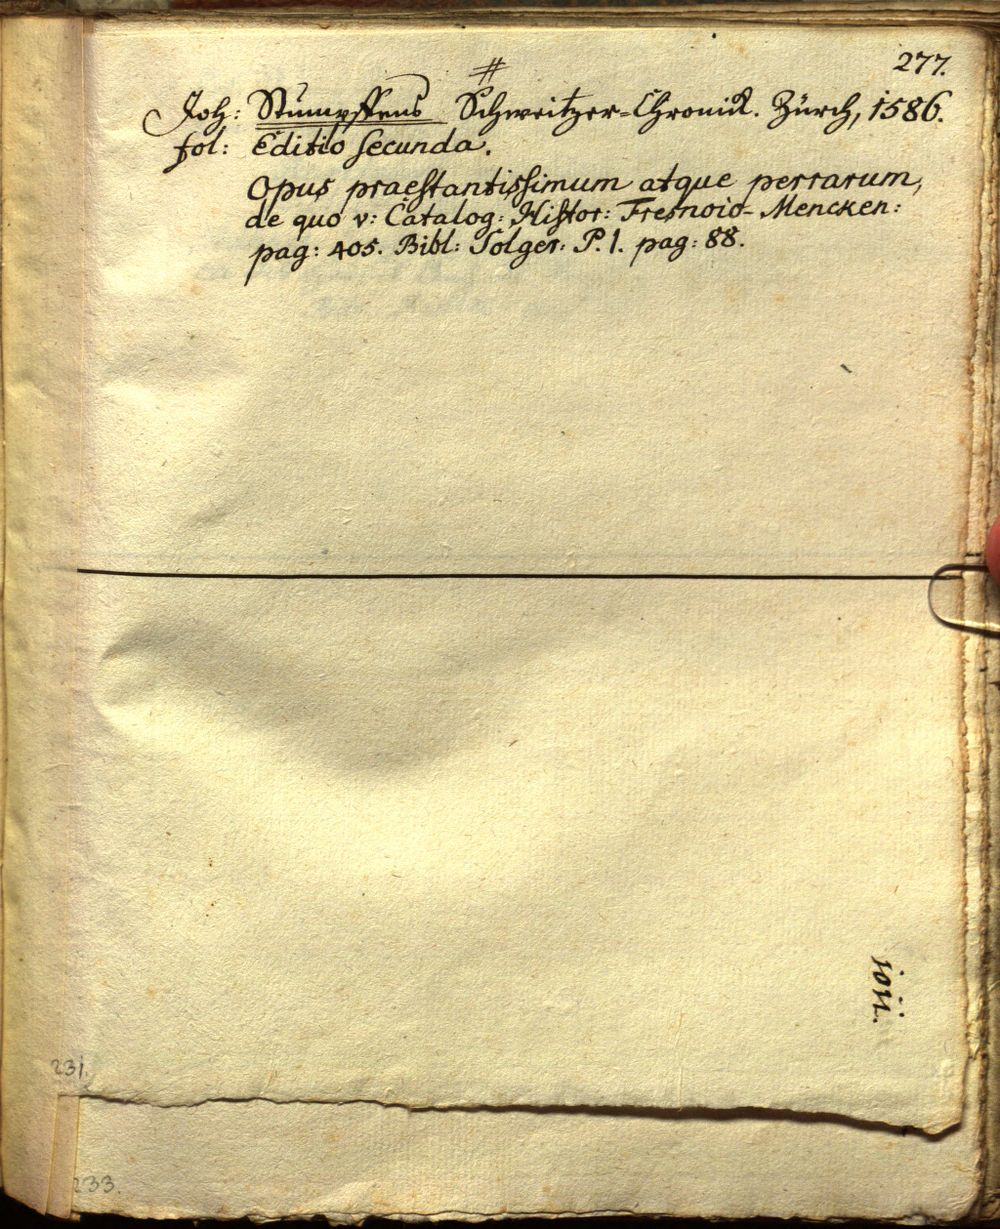 277.
#
Joh: Stumpffens Schweitzer-Chronick. Zürch, 1586.
fol: Editio secunda.
Opus praestantissimum atque perrarum,
de quo v: Catalog: Histor: Fresnoio-Mencken:
pag: 405. Bibl: Solger: P. 1. pag: 88.
1011.
231.
233.